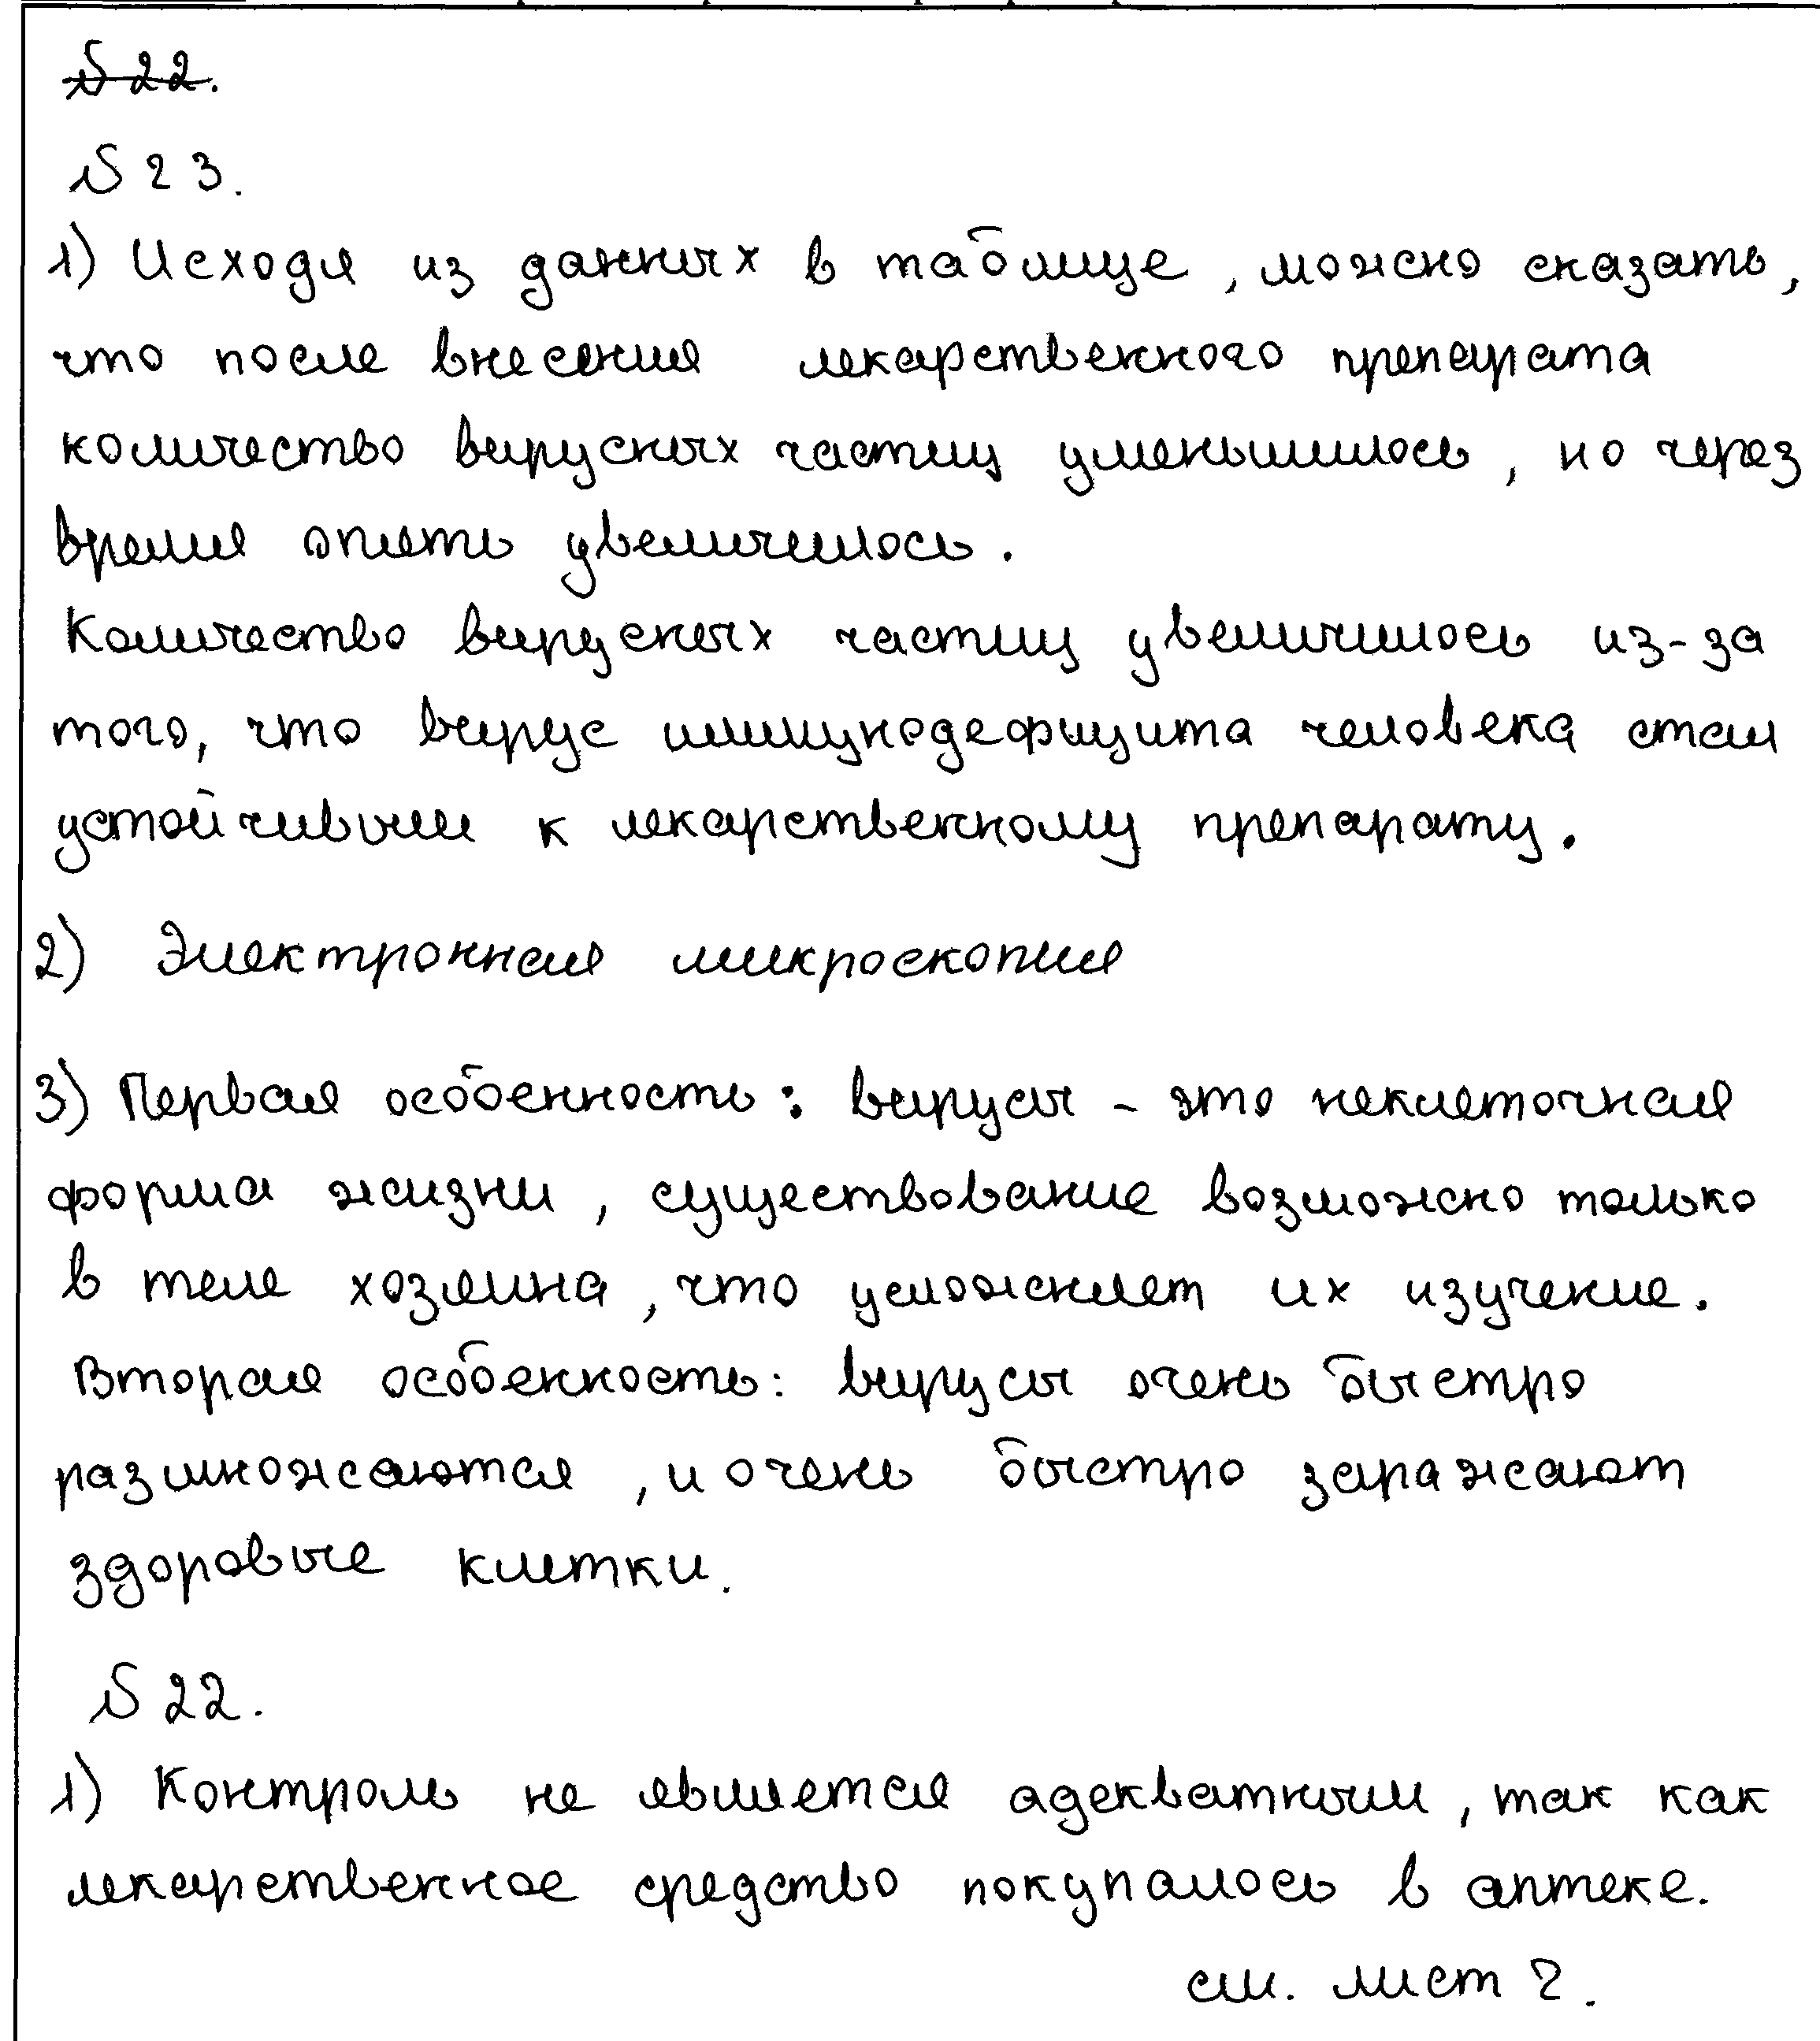 № 22.
№ 23.
1) Исходя из данных в таблице, можно сказать,
что после внесения лекарственного препарата
количество вирусных частиц уменьшилось, но через
время опять увеличилось.
Количество вирусных частиц увеличилось из-за
того, что вирус иммунодефицита человека стал
устойчивым к лекарственному препарату.
2) Электронная микроскопия
3) Первая особенность: вирусы - это неклеточная
форма жизни, существование возможно только
в теле хозяина, что усложняет их изучение.
Вторая особенность: вирусы очень быстро
размножаются, и очень быстро заражают
здоровые клетки.
№ 22.
1) Контроль не является адекватным, так как
лекарственное средство покупалось в аптеке.
см. лист 2.